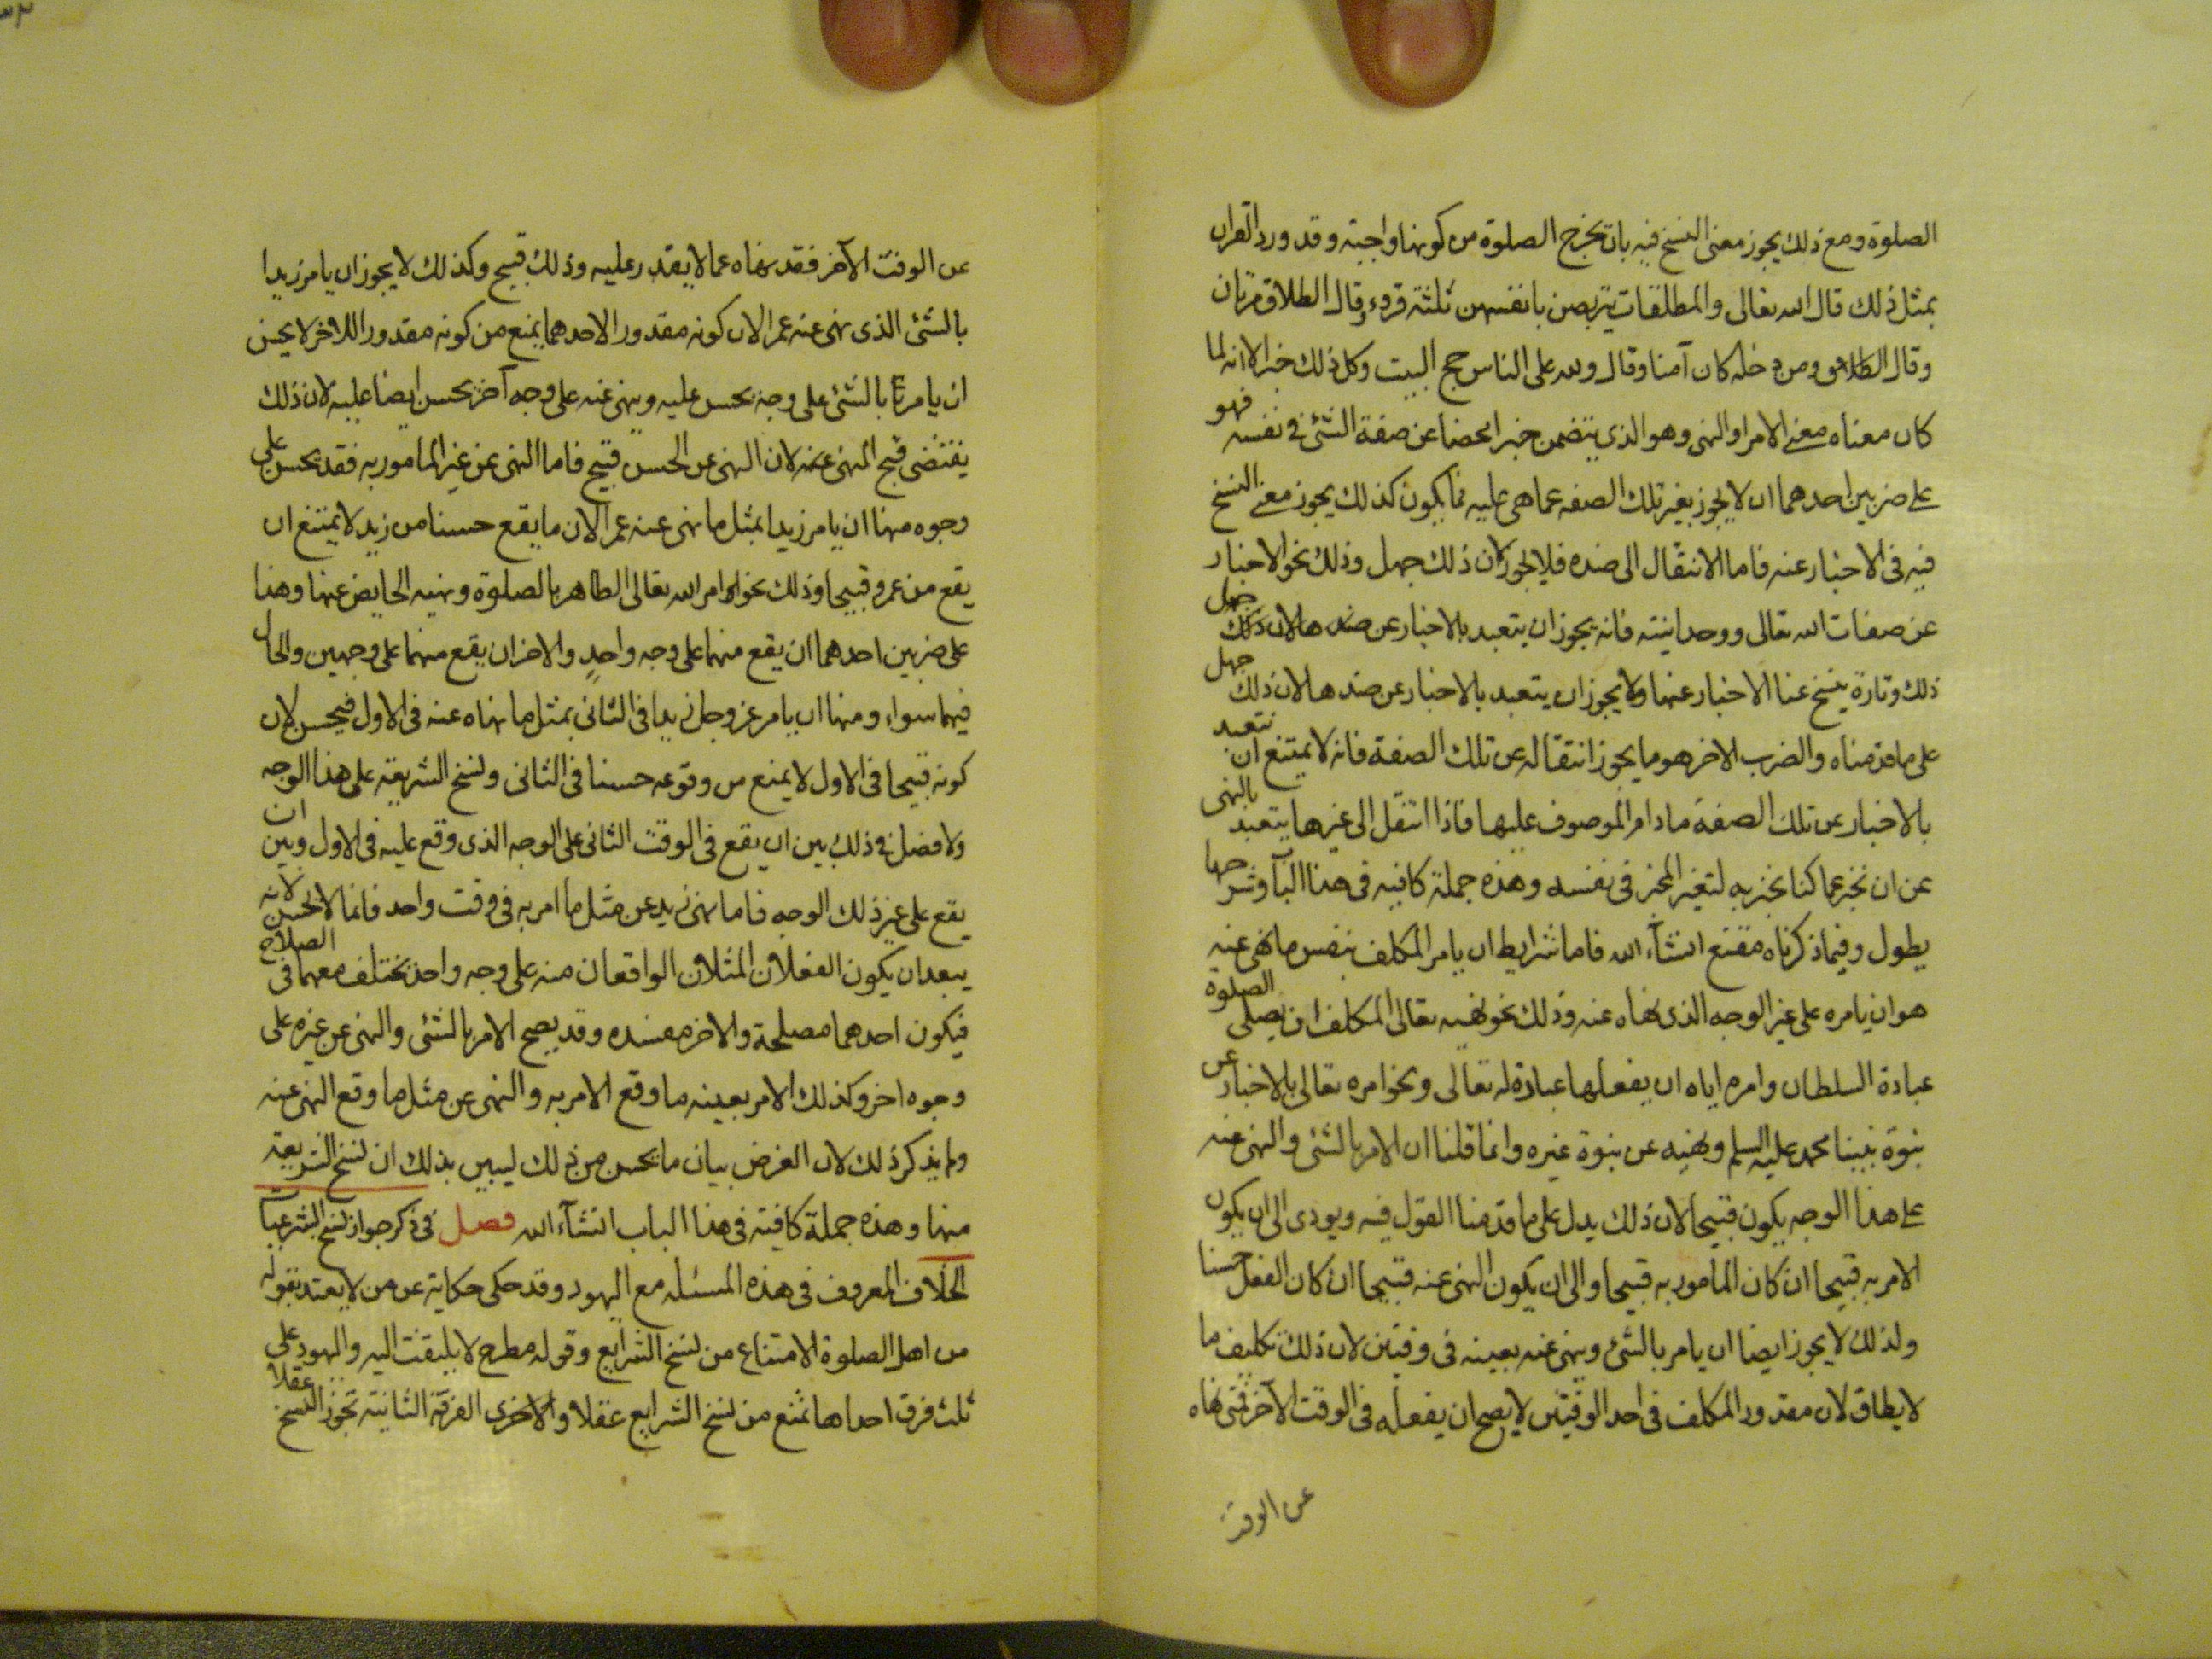 الصلوة ومع ذلك يجوز معنى النسخ فيه بان يخرج الصلوة من كونها واجبة وقد ورد القران
بمثل ذلك قال الله تعالى والمطلقات يتربصن بانفسهن ثلثة قروء وقال الطلاق مرتان
وقال ومن دخله كان آمنا وقال ولله على الناس حج البيت وكل ذلك خبر الا انه لما
كان معناه معنى الامر او النهى وهو الذى يتضمن خبرا محضا عن صفة الشئ فى نفسه فهو
على ضربين احدهما ان لا يجوز تغير تلك الصفه عما هى عليه فما يكون كذلك يجوز معنى النسخ
فيه فى الاخبار عنه فاما الانتقال الى ضده فلا يجوز لان ذلك جهل وذلك نحو الاخبار
عن صفات الله تعالى ووحدانيته فانه يجوز ان يتعبد بالاخبار عن ضدها لان ذلك جهل
ذلك وتارة ينسخ عنا الاخبار عنها ولا يجوز ان يتعبد بالاخبار عن ضدها لان ذلك جهل
على ما قدمناه والضرب الاخر هو ما يجوز انتقاله عن تلك الصفة فانه لا يمتنع ان نتعبد
بالاخبار عن تلك الصفة ما دام الموصوف عليها فاذا انتقل الى غيرها يتعبد بالنهى
عن ان نخبر عما كنا نخبر به لتغير المخبر فى نفسه وهذه جملة كافيه فى هذا الباب وشرحها
يطول وفيما ذكرناه مقنع انشاء الله فاما شرايط ان يامر المكلف بنفس ما نهى عنه
هو ان يامره على غير الوجه الذى نهاه عنه وذلك نحو نهيه تعالى المكلف ان يصلى الصلوة
عبادة السلطان وامره اياه ان يفعلها عبادة له تعالى ونحو امره تعالى بالاخبار عن
نبوة نبينا محمد عليه السلم ونهيه عن نبوة غيره وانما قلنا ان الامر بالشئ والنهى عنه
على هذا الوجه يكون قبيحا لان ذلك يدل على ما قدمنا القول فيه ويودى الى ان يكون
الامر به قبيحا ان كان المامور به قبيحا والى ان يكون النهى عنه قبيحا ان كان الفعل حسنا
ولذلك لا يجوز ايضا ان يامر بالشئ وينهى عنه بعينه فى وقتين لان ذلك تكليف ما
لا يطاق لان مقدور المكلف فى احد الوقتين لا يصح ان يفعله فى الوقت الآخر فمتى نهاه
عن الوقت
عن الوقت الآخر فقد نهاه عما لا يقدر عليه وذلك قبيح وكذلك لا يجوز ان يامر زيدا
بالشئ الذى نهى عنه عمرا لان كونه مقدورا لاحدهما يمنع من كونه مقدورا للاخر لا يحسن
ان يامرنا بالشئ على وجه يحسن عليه وينهى عنه على وجه آخر يحسن ايضا عليه لان ذلك
يقتضى قبح النهى عنه لان النهى عن الحسن قبيح فاما النهى عن غير المامور به فقد يحسن على
وجوه منها ان يامر زيدا بمثل ما نهى عنه عمرا لان ما يقع حسنا من زيد لا يمتنع ان
يقع من عمرو قبيحا وذلك نحو امر الله تعالى الطاهر بالصلوة ونهيه الحايض عنها وهذا
على ضربين احدهما ان يقع منهما على وجه واحد والاخر ان يقع منهما على وجهين والحال
فيهما سواء ومنها ان يامر عز وجل زيدا فى الثانى بمثل ما نهاه عنه فى الاول فيحسن لان
كونه قبيحا فى الاول لا يمنع من وقوعه حسنا فى الثانى ونسخ الشريعة على هذا الوجه
ولا فصل فى ذلك بين ان يقع فى الوقت الثانى على الوجه الذى وقع عليه فى الاول وبين ان
يقع على غير ذلك الوجه فاما نهى زيد عن مثل ما امر به فى وقت واحد فانما لا يحسن لانه
يبعد ان يكون الفعلان المثلان الواقعان منه على وجه واحد يختلف معهما فى الصلاح
فيكون احدهما مصلحة والاخر مفسده وقد يصح الامر بالشئ والنهى عن غيره على
وجوه اخر وكذلك الامر بعينه ما وقع الامر به والنهى عن مثل ما وقع النهى عنه
ولم يذكر ذلك لان الغرض بيان ما يحسن من ذلك ليبين بذلك ان نسخ الشريعة
منها وهذه جملة كافية فى هذا الباب انشآء الله فصل فى ذكر جواز نسخ الشرعيات
الخلاف المعروف فى هذه المسئله مع اليهود وقد حكى حكاية عن من لا يعتد بقوله
من اهل الصلوة الامتناع من نسخ الشرايع وقوله مطرح لا يلتفت اليه واليهود على
ثلث فرق احداها تمنع من نسخ الشرايع عقلا والاخرى الفرقة الثانية تجوز النسخ عقلا